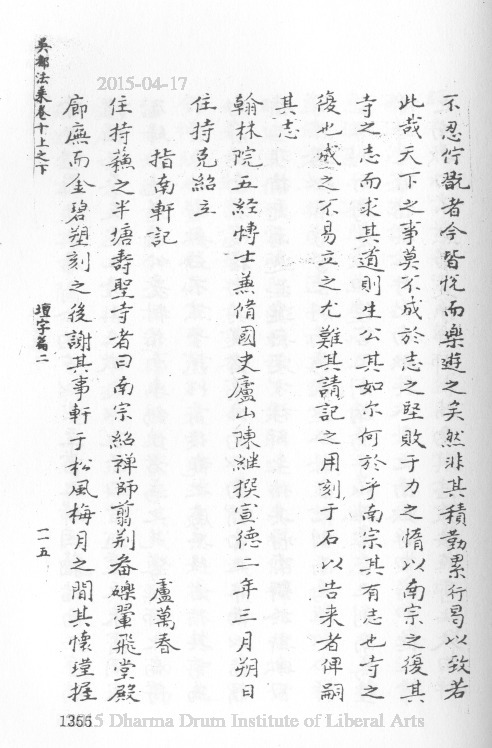 不忍佇翫者今皆悅而樂遊之矣然非其積勤累行曷以致若
此哉天下之事莫不成於志之堅敗于力之惰以南宗之復其
寺之志而求其道則生公其如尔何於乎南宗其有志也寺之
復也成之不易立之尤難其請記之用刻于石以告来者俾嗣
其志
翰林院五經博士兼脩國史廬山陳継撰宣德二年三月朔日
住持克紹立
指南軒記 盧萬春
住持蘓之半塘壽聖寺者曰南宗紹禅師翦荆畚礫翬飛堂殿
廊廡而金碧塑刻之後謝其事軒于松風梅月之間其懷瑾握
吳都法乘卷十上之下
壇字篇二
一一五
2015-04-17
1355
2015 Dharma Drum Institute of Liberal Arts